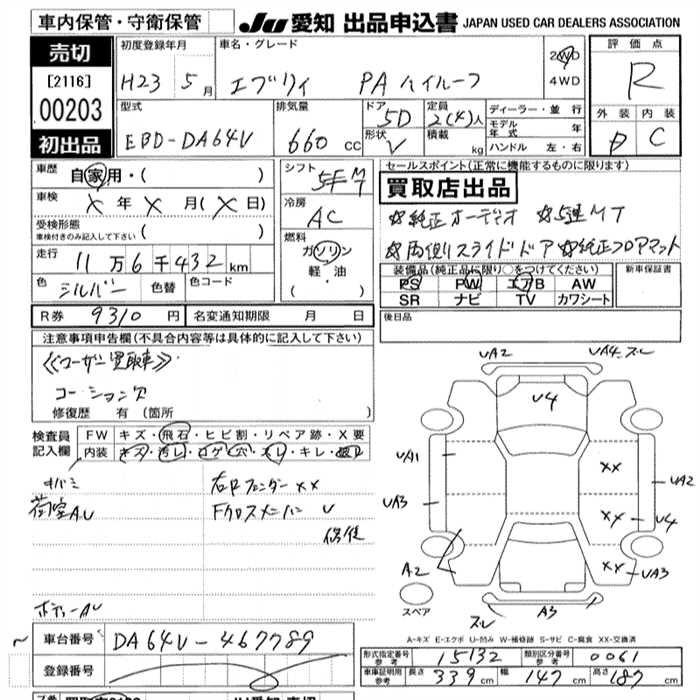 車内保管・守衛保管
JU 愛知 出品申込書 JAPAN USED CAR DEALERS ASSOCIATION
売切
[2116]
00203
初出品
初度登録年月
H23 5月
車名・グレード
エブリイ PA ハイルーフ
2WD
4WD
評価点
R
外装 内装
D C
型式
EBD-DA64V
排気量
660 cc
ドア
5D
形状
V
定員
2(4)人
積載
kg
ディーラー・並行
モデル年式 年
ハンドル 左・右
車歴
自家用・( )
車検
X 年 X 月(X 日)
受検形態
車検付きのみ記入して下さい ( )
走行
11万6千432km
色
シルバー
色替
色コード
R券 9310 円
名変通知期限 月 日
シフト
5FM
冷房
AC
燃料
ガソリン
軽・油
・( )
セールスポイント(正常に機能するものに限ります)
買取店出品
☆純正オーデイオ ☆5速MT
☆両側スライドドア ☆純正フロアマット
装備品(純正品に限り○をつけてください)
PS PW エアB AW
SR ナビ TV カワシート
新車保証書
後日品
注意事項申告欄(不具合内容等は具体的に記入して下さい)
《ユーザー買取車》
コーションカ
修復歴 有(箇所 )
検査員記入欄
FW キズ・飛石・ヒビ割・リペア跡・X要
内装 キズ・汚レ・コゲ・穴・スレ・キレ・破レ
荷室AU
右Fフェンダー XX
Fクロスメンバー V
ボデーAU
UA2
UA4.スレ
V4
UA1
UA3
XX
UA2
XX
U4
XX
UA3
A2
スレ
A3
スペア
A-キズ E-エクボ U-凹み W-補修跡 S-サビ C-腐食 XX-交換済
車台番号 DA64V-467789
登録番号
形式指定番号 参考 15132
類別区分番号 参考 0061
車庫証明用 参考 長さ 339 cm 幅 147 cm 高さ 187 cm